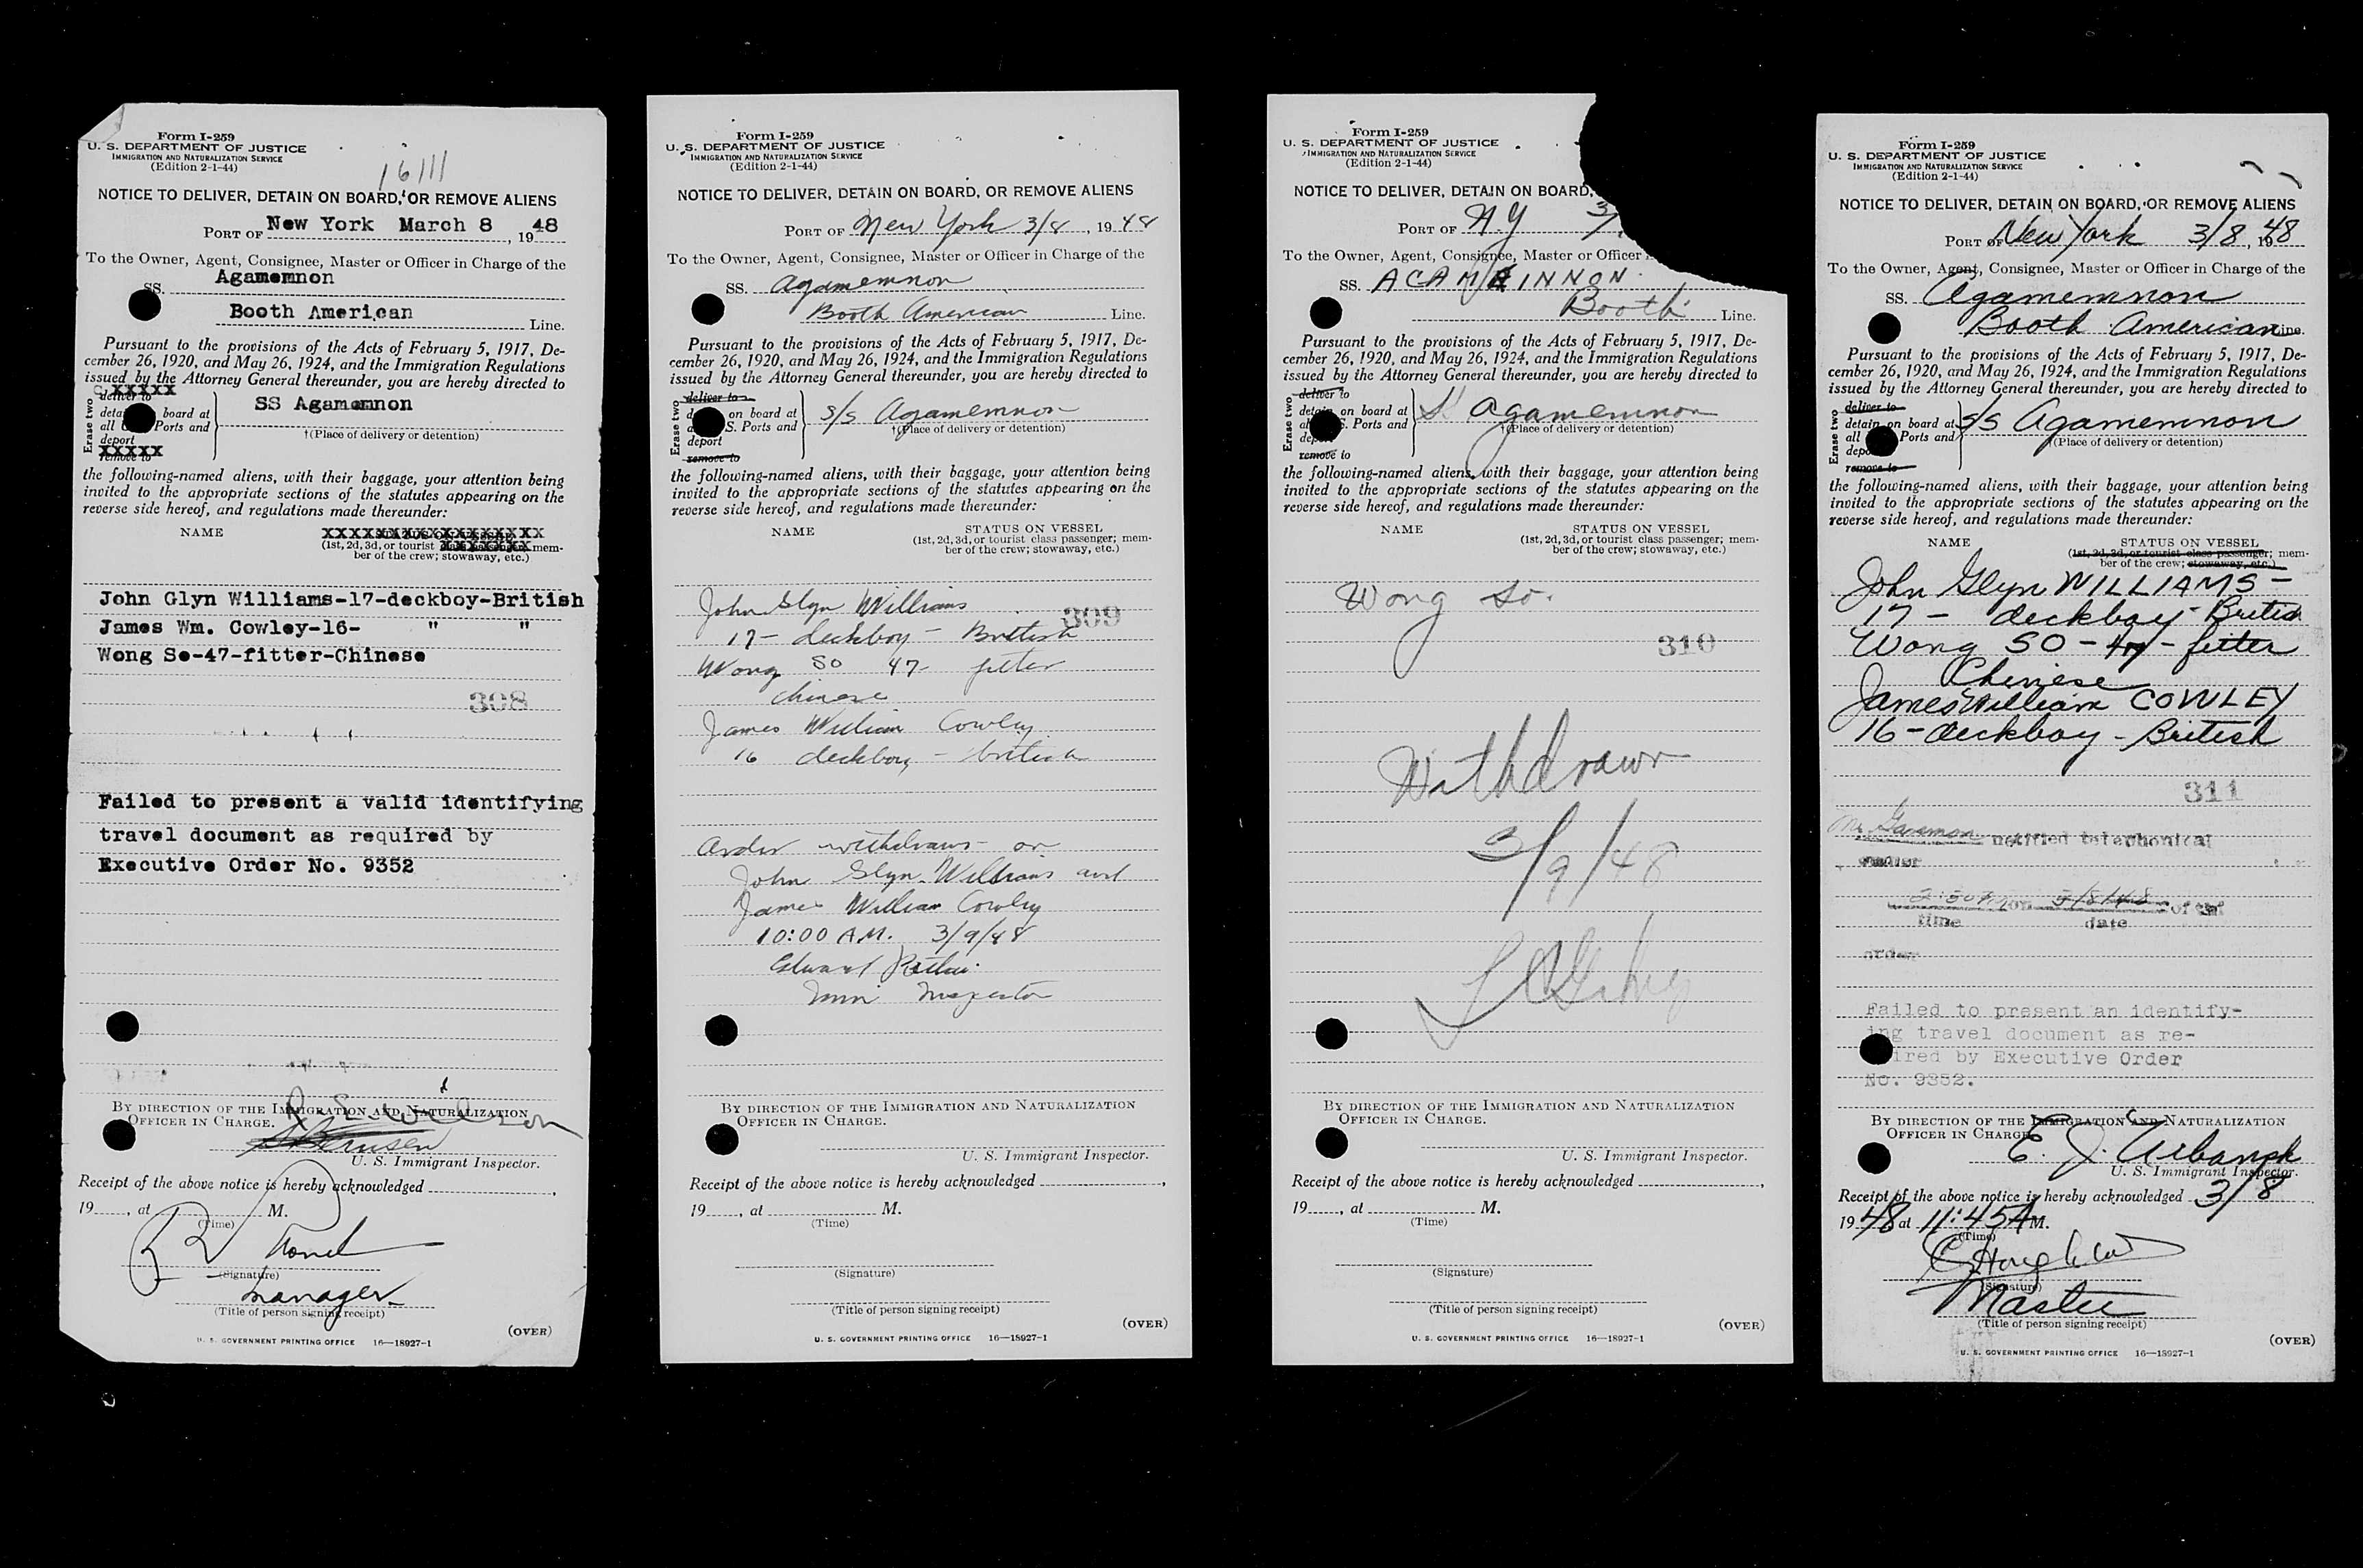 Form I-259
U. S. DEPARTMENT OF JUSTICE
IMMIGRATION AND NATURALIZATION SERVICE
(Edition 2-1-44)
16111
NOTICE TO DELIVER, DETAIN ON BOARD, OR REMOVE ALIENS
PORT OF New York March 8, 1948
To the Owner, Agent, Consignee, Master or Officer in Charge of the
SS. Agamemnon
Booth American Line.
Pursuant to the provisions of the Acts of February 5, 1917, De-
cember 26, 1920, and May 26, 1924, and the Immigration Regulations
issued by the Attorney General thereunder, you are hereby directed to
XXXXX
deliver to
Erase two
board at
SS Agamemnon
all Ports and
†(Place of delivery or detention)
deport
XXXXX
remove to
the following-named aliens, with their baggage, your attention being
invited to the appropriate sections of the statutes appearing on the
reverse side hereof, and regulations made thereunder:
NAME XXXXXXXXXXXXXXXXXXXX
(1st, 2d, 3d, or tourist mem-
ber of the crew; stowaway, etc.)
John Glyn Williams-17-deckboy-British
James Wm. Cowley-16- " "
Wong So-47-fitter-Chinese
308
Failed to present a valid identifying
travel document as required by
Executive Order No. 9352
BY DIRECTION OF THE IMMIGRATION AND NATURALIZATION
OFFICER IN CHARGE.
U. S. Immigrant Inspector.
Receipt of the above notice is hereby acknowledged
19, at M.
(Time)
(Signature)
manager
(Title of person signing receipt)
(OVER)
U. S. GOVERNMENT PRINTING OFFICE 16—18927-1
Form I-259
U. S. DEPARTMENT OF JUSTICE
IMMIGRATION AND NATURALIZATION SERVICE
(Edition 2-1-44)
NOTICE TO DELIVER, DETAIN ON BOARD, OR REMOVE ALIENS
PORT OF New York 3/8, 1948
To the Owner, Agent, Consignee, Master or Officer in Charge of the
SS. Agamemnon
Booth American Line.
Pursuant to the provisions of the Acts of February 5, 1917, De-
cember 26, 1920, and May 26, 1924, and the Immigration Regulations
issued by the Attorney General thereunder, you are hereby directed to
deliver to
Erase two
on board at
S/S Agamemnon
S. Ports and
†(Place of delivery or detention)
deport
remove to
the following-named aliens, with their baggage, your attention being
invited to the appropriate sections of the statutes appearing on the
reverse side hereof, and regulations made thereunder:
NAME STATUS ON VESSEL
(1st, 2d, 3d, or tourist class passenger; mem-
ber of the crew; stowaway, etc.)
John Glyn Williams
309
17- deckboy - British
Wong So 47- fitter
chinese
James William Cowley
16 deckboy - british
Order withdrawn on
John Glyn Williams and
James William Cowley
10:00 A.M. 3/9/48
Edward
Imm Inspector
BY DIRECTION OF THE IMMIGRATION AND NATURALIZATION
OFFICER IN CHARGE.
U. S. Immigrant Inspector.
Receipt of the above notice is hereby acknowledged
19, at M.
(Time)
(Signature)
(Title of person signing receipt)
(OVER)
U. S. GOVERNMENT PRINTING OFFICE 16—18927-1
Form I-259
U. S. DEPARTMENT OF JUSTICE
IMMIGRATION AND NATURALIZATION SERVICE
(Edition 2-1-44)
NOTICE TO DELIVER, DETAIN ON BOARD,
PORT OF N.Y 3/
To the Owner, Agent, Consignee, Master or Officer
SS. ACAMEINNON
Booth Line.
Pursuant to the provisions of the Acts of February 5, 1917, De-
cember 26, 1920, and May 26, 1924, and the Immigration Regulations
issued by the Attorney General thereunder, you are hereby directed to
deliver to
Erase two
detain on board at
Agamemnon
S. Ports and
†(Place of delivery or detention)
remove to
the following-named aliens, with their baggage, your attention being
invited to the appropriate sections of the statutes appearing on the
reverse side hereof, and regulations made thereunder:
NAME STATUS ON VESSEL
(1st, 2d, 3d, or tourist class passenger; mem-
ber of the crew; stowaway, etc.)
Wong So.
310
Withdrawn
3/9/48
BY DIRECTION OF THE IMMIGRATION AND NATURALIZATION
OFFICER IN CHARGE.
U. S. Immigrant Inspector.
Receipt of the above notice is hereby acknowledged
19, at M.
(Time)
(Signature)
(Title of person signing receipt)
(OVER)
U. S. GOVERNMENT PRINTING OFFICE 16—18927-1
Form I-259
U. S. DEPARTMENT OF JUSTICE
IMMIGRATION AND NATURALIZATION SERVICE
(Edition 2-1-44)
NOTICE TO DELIVER, DETAIN ON BOARD, OR REMOVE ALIENS
PORT OF New York 3/8, 1948
To the Owner, Agent, Consignee, Master or Officer in Charge of the
SS. Agamemnon
Booth American Line.
Pursuant to the provisions of the Acts of February 5, 1917, De-
cember 26, 1920, and May 26, 1924, and the Immigration Regulations
issued by the Attorney General thereunder, you are hereby directed to
deliver to
Erase two
detain on board at
S/S Agamemnon
all Ports and
(Place of delivery or detention)
remove to
the following-named aliens, with their baggage, your attention being
invited to the appropriate sections of the statutes appearing on the
reverse side hereof, and regulations made thereunder:
NAME STATUS ON VESSEL
(1st, 2d, 3d, or tourist class passenger; mem-
ber of the crew; stowaway, etc.)
John Glyn WILLIAMS -
17 - deckboy - British
Wong SO - 47 - fitter
Chinese
James William COWLEY
16 - deckboy - British
311
notified telephonical
3/8/48 of this
time date
order
Failed to present an identify-
ing travel document as re-
ired by Executive Order
No. 9352.
BY DIRECTION OF THE IMMIGRATION AND NATURALIZATION
OFFICER IN CHARGE
E. J. Urbanek
U. S. Immigrant Inspector.
Receipt of the above notice is hereby acknowledged 3/8
1948 at 11:45 A M.
(Time)
(Signature)
Master
(Title of person signing receipt)
(OVER)
U. S. GOVERNMENT PRINTING OFFICE 16—18927-1